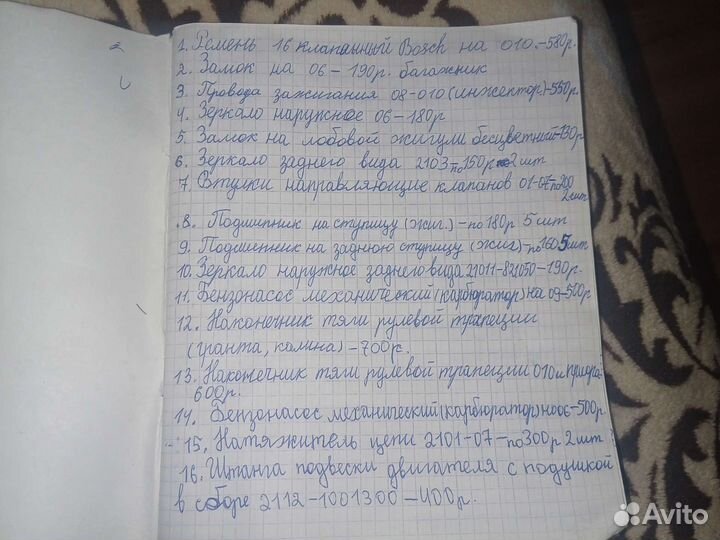 1. Ремень 16 клапанный Bosch на 010.-580р.
2. Замок на 06 – 190р. багажник
3. Провода зажигания 08-010 (инжектор)-550р.
4. Зеркало наружное 06-180р
5. Замок на лобовой жигули бесцветный-130р
6. Зеркало заднего вида 2103 по 150р 2 шт
7. Втулки направляющие клапанов 01-07-по 200
2шт
8. Подшипник на ступицу (жиг.) – по 180р 5 шт
9. Подшипник на заднюю ступицу (жиг)-по 160 5шт
10. Зеркало наружное заднего вида 21011-821050-190р.
11. Бензонасос механический (карбюратор) на 09-500р
12. Наконечник тяги рулевой трапеции
(гранта, калина) – 700р.
13. Наконечник тяги рулевой трапеции 010 и приора-
600р.
14. Бензонасос механический (карбюратор) -500р.
15. Натяжитель цепи 2101-07-по 300р 2шт
16. Штанга подвески двигателя с подушкой
в сборе 2112-1001300-400р.
Avito